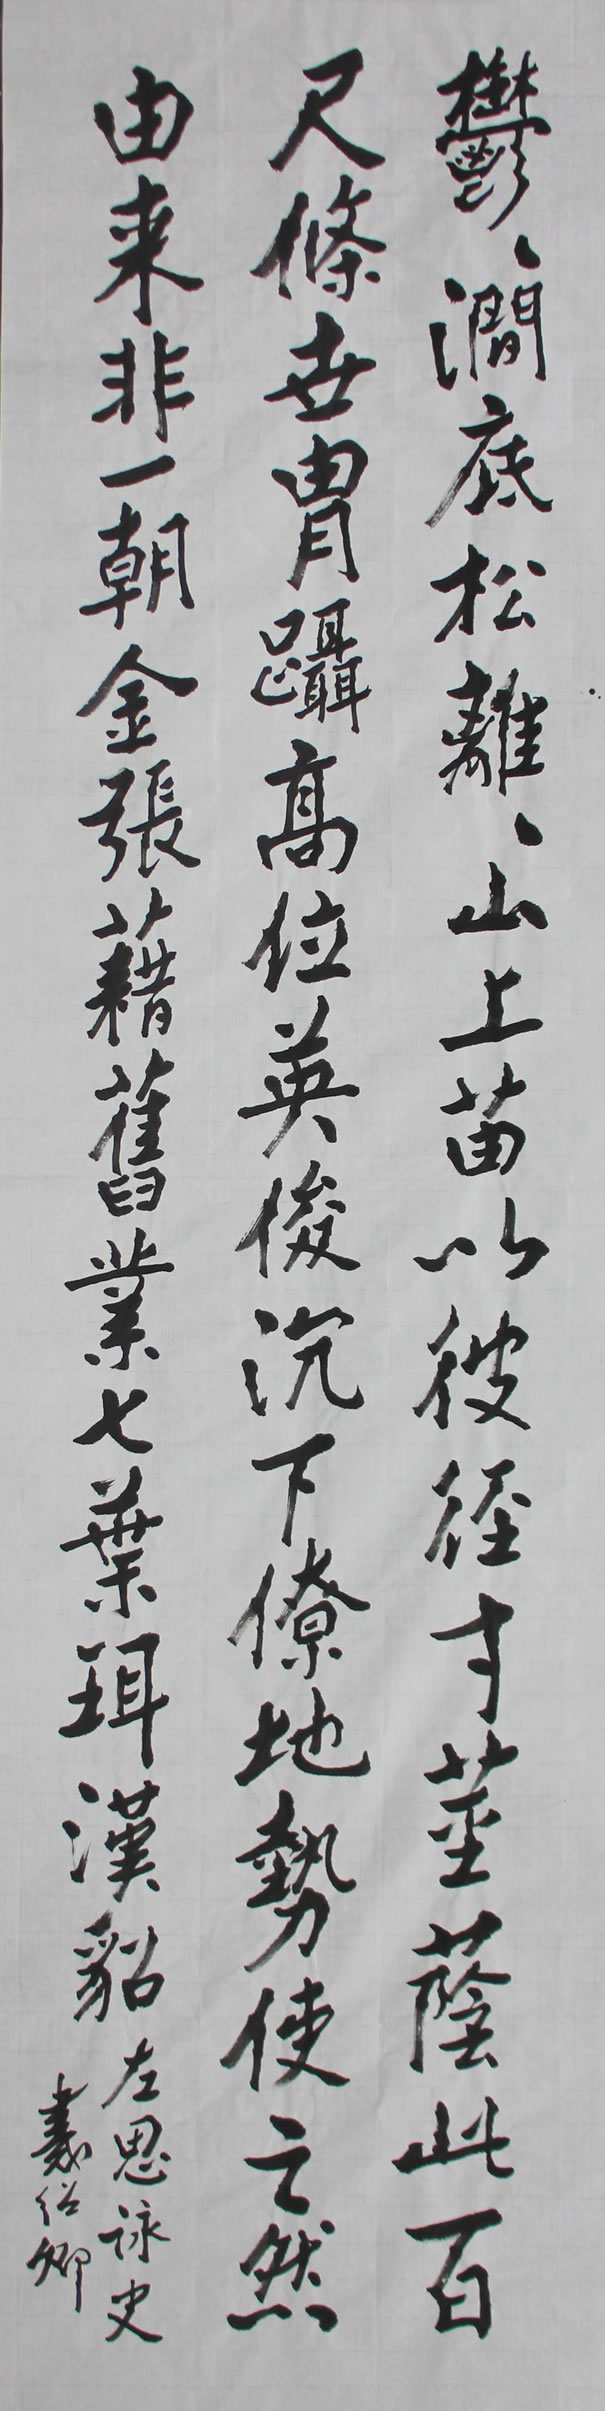 鬱、澗底松離、山上苗以彼徑寸莖蔭此百
尺條世胄躡高位英俊沉下僚地勢使之然
由来非一朝金張藉舊業七葉珥漢貂
左思詠史